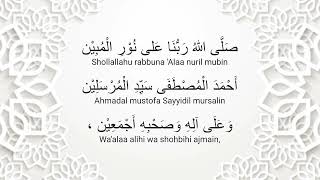 صَلَّى اللهُ رَبُّنَا عَلَى نُوْرِ الْمُبِيْنِ
Shollallahu rabbuna 'Alaa nuril mubin
أَحْمَدَ الْمُصْطَفَى سَيِّدِ الْمُرْسَلِيْنَ
Ahmadal mustofa Sayyidil mursalin
وَعَلَى آلِهِ وَصَحْبِهِ أَجْمَعِيْنَ ،
Wa'alaa alihi wa shohbihi ajmain,